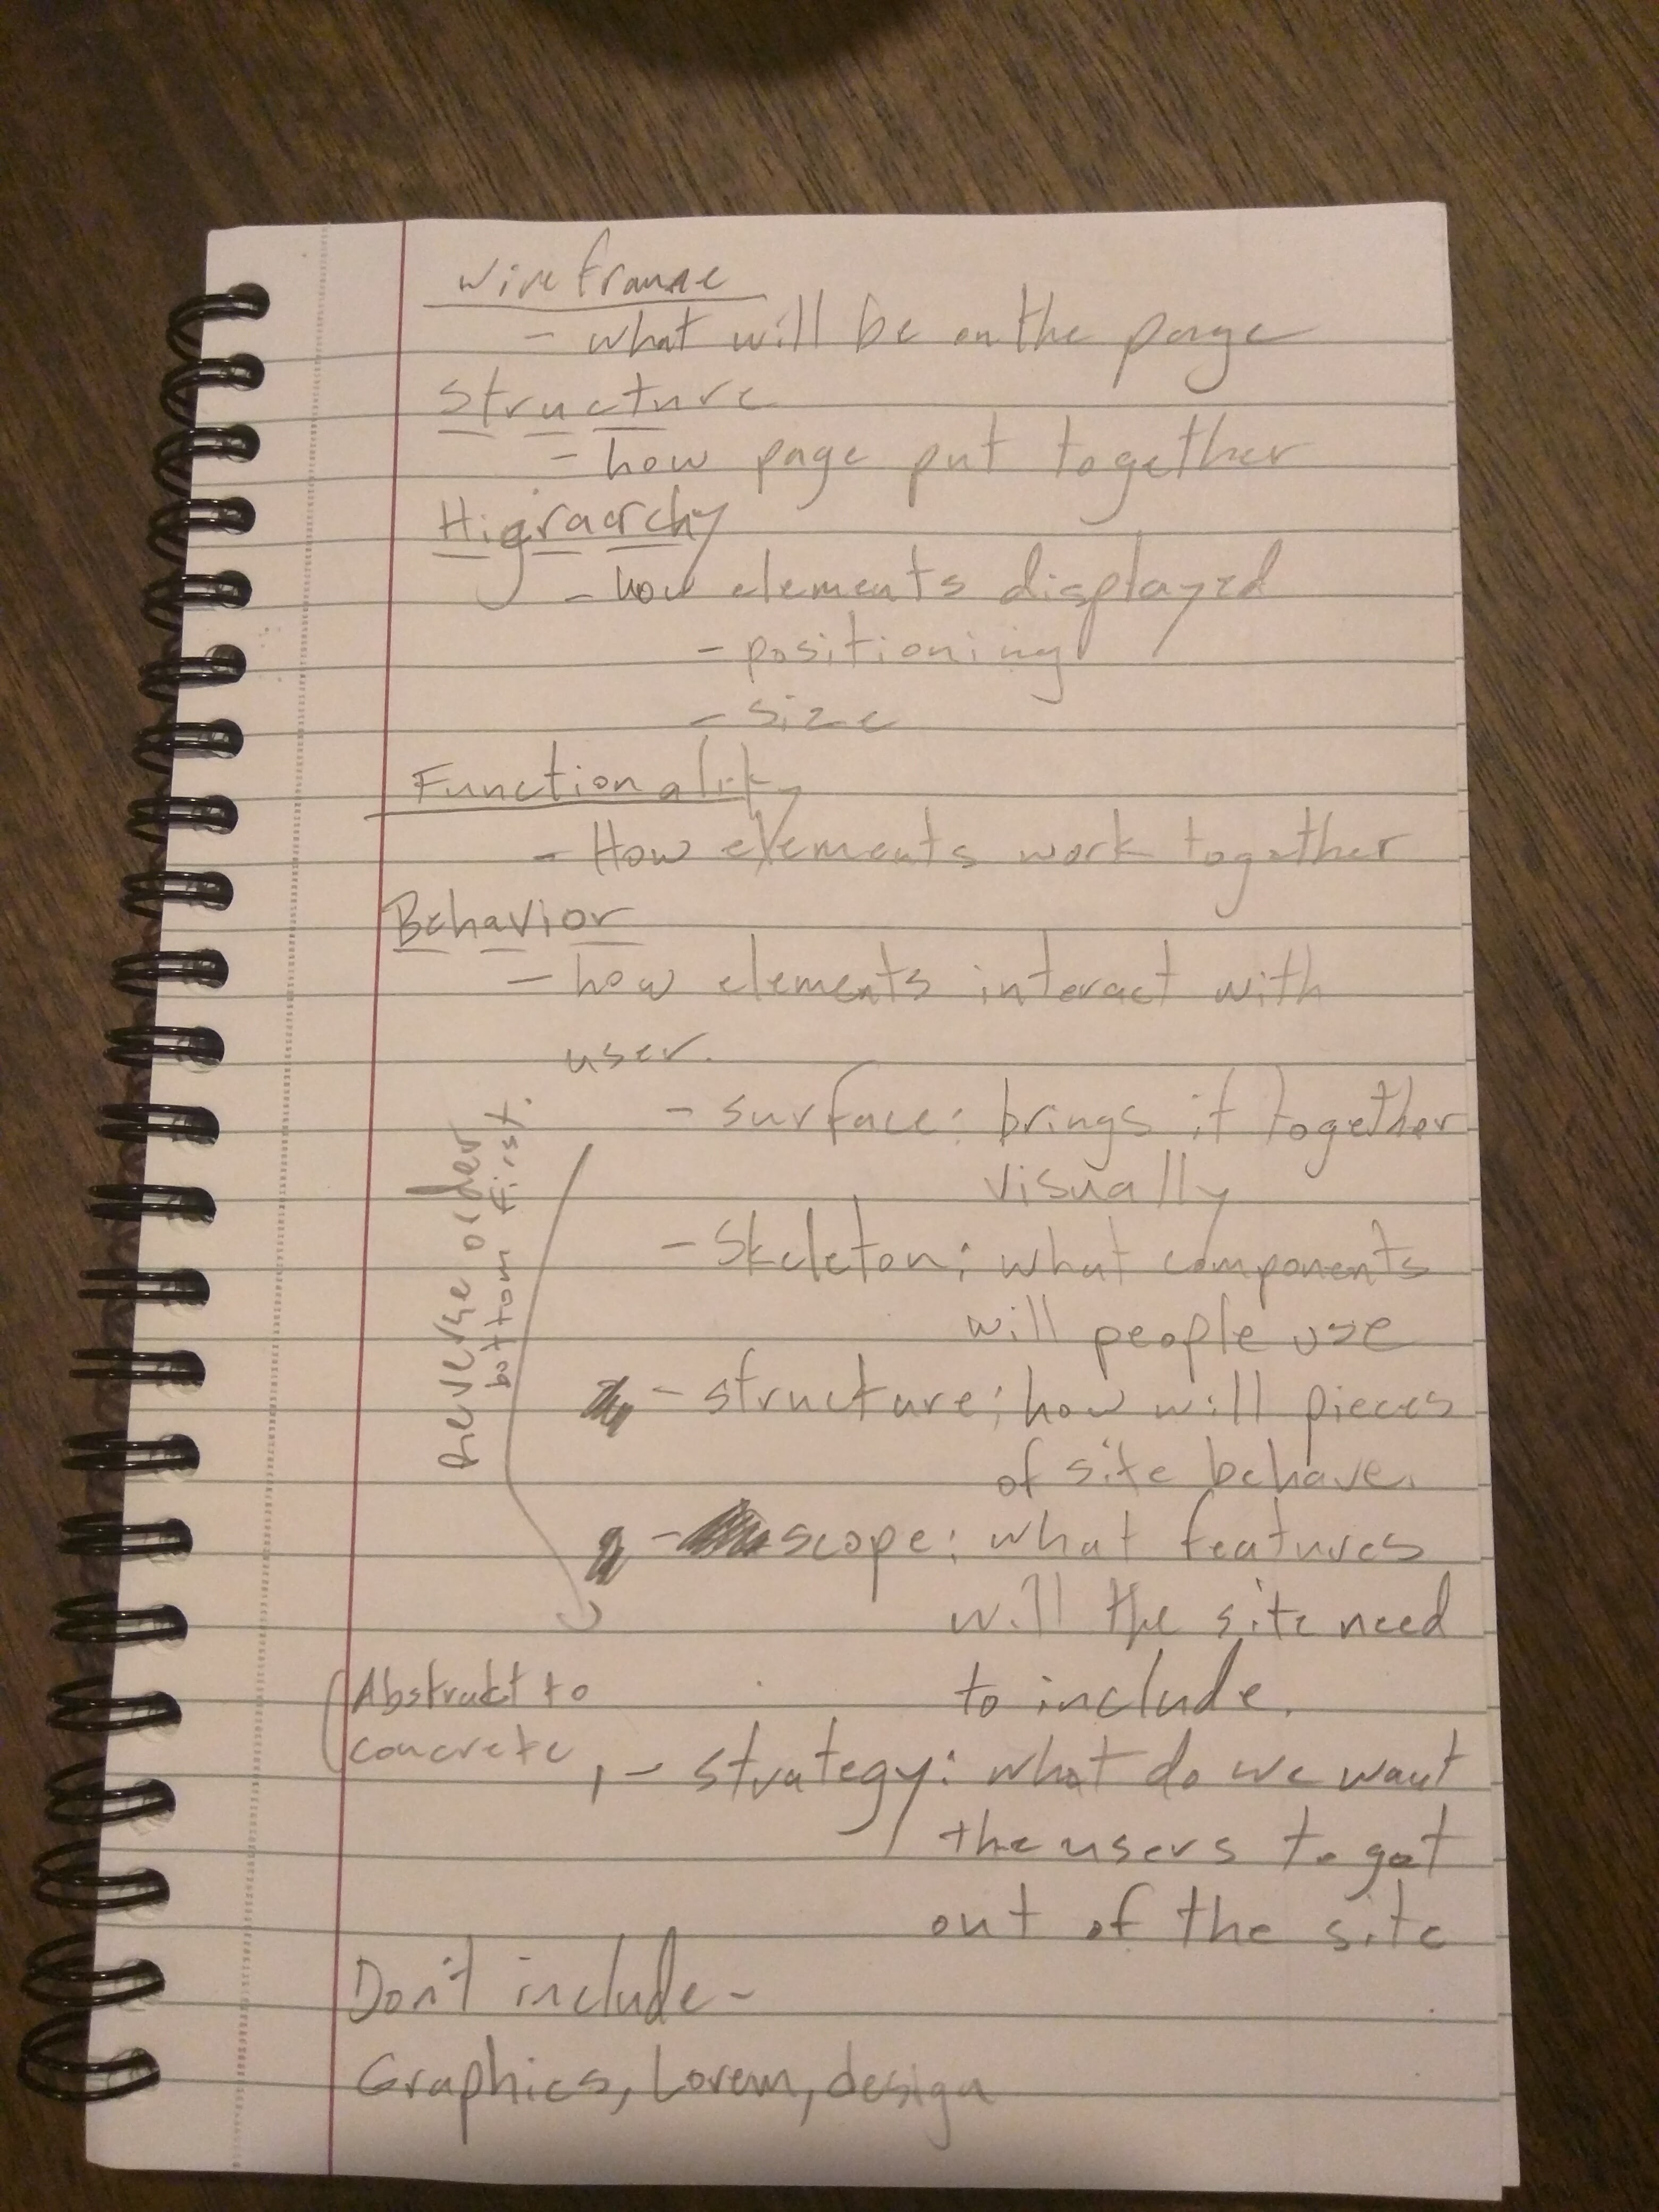 Wireframe
- what will be on the page
Structure
- how page put together
Higraarchy
- how elements displayed
- positioning
- size
Functionality
- How elements work together
Behavior
- how elements interact with
user.
- surface: brings it together
visually
- Skeleton: what components
will people use
- structure: how will pieces
of site behave.
- scope: what features
will the site need
to include.
1 - strategy: what do we want
the users to get
out of the site
Reverse order
bottom first.
(Abstrakt to
concrete
Don't include -
Graphics, Lorem, design